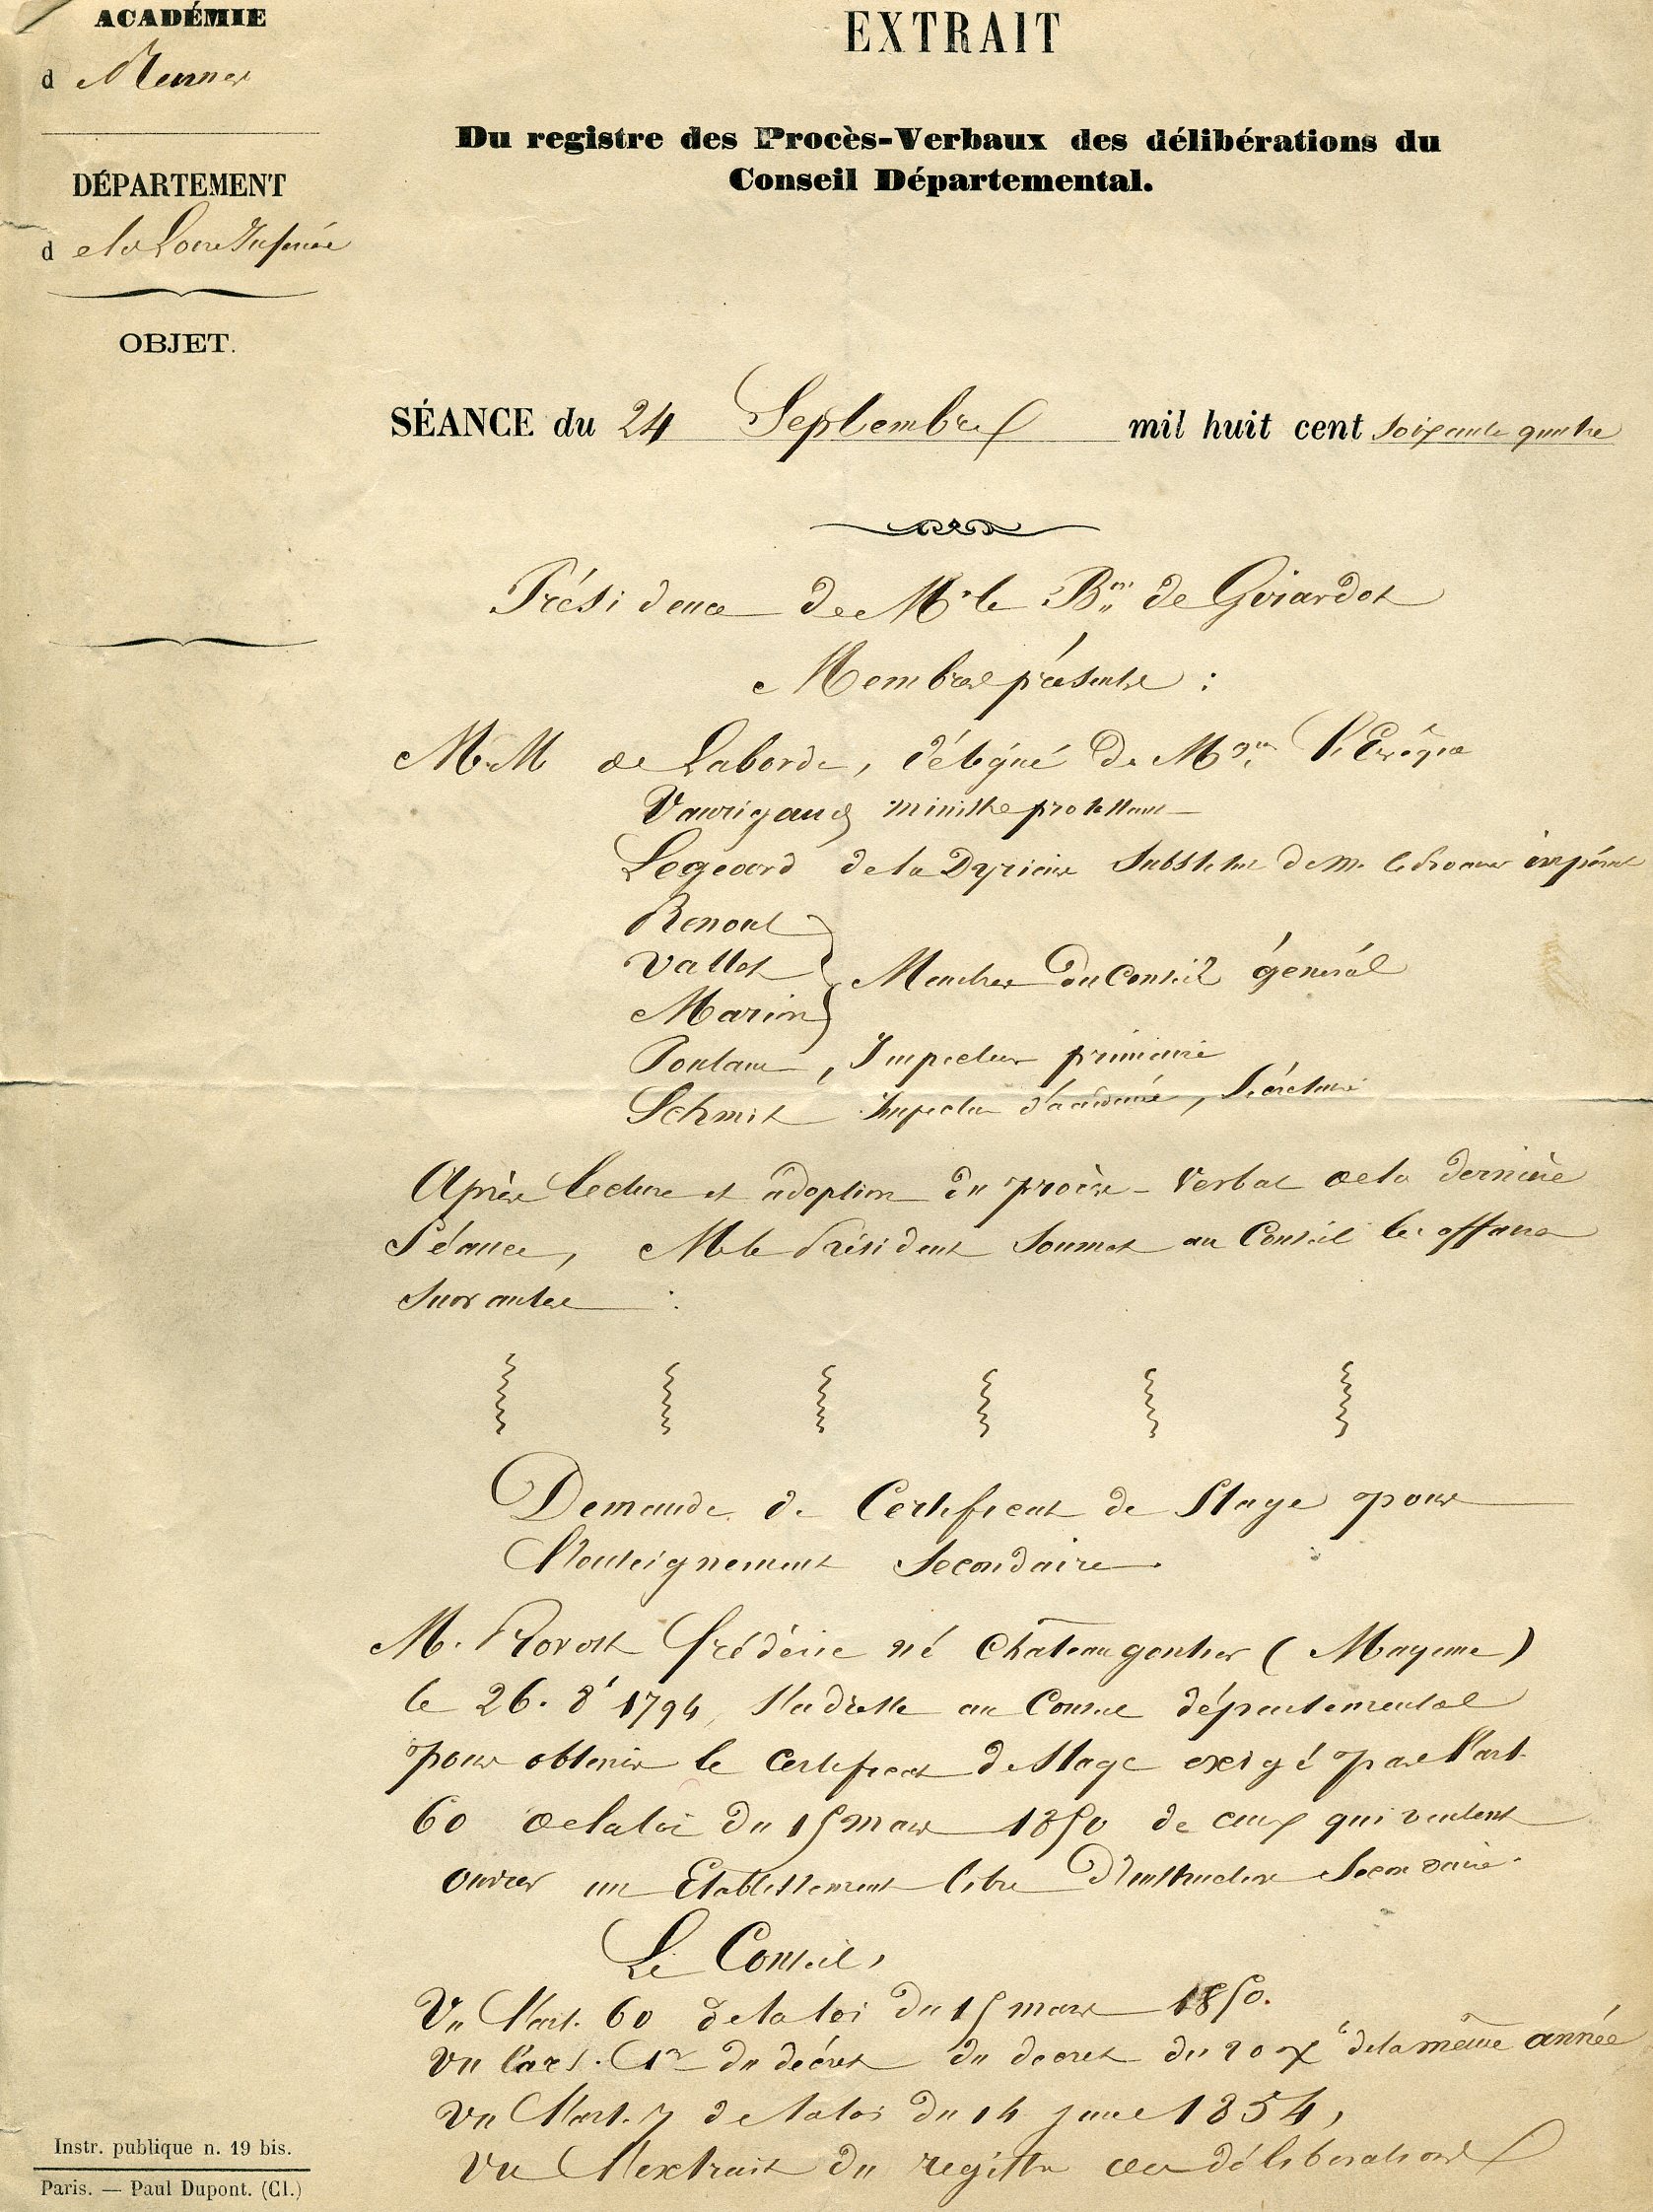 ACADÉMIE
d e Rennes
DÉPARTEMENT
d e la Loire Inférieure
OBJET.
EXTRAIT
Du registre des Procès-Verbaux des délibérations du
Conseil Départemental.
SÉANCE du 24 Septembre mil huit cent soixante quatre
Présidence de M. le Bon de Girardot
Membres présents :
M.M de Laborde, délégué de Mgr l'Evêque
Vaurigaud ministre protestant
Legeard de la Dyriais Substitut de m. le Procureur impérial
Renoul
Vallet
Marion
Membres du Conseil général
Poulain, Inspecteur primaire
Schmit Inspecteur d'académie, Secrétaire
Après lecture et adoption du procès-verbal de la dernière
Séance, M le Président soumet au Conseil les affaires
suivantes :
Demande de Certificat de Stage pour
l'enseignement Secondaire.
M. Provost frédéric né Châteaugontier (Mayenne)
le 26. 8e 1794, s'adresse au Conseil départemental
pour obtenir le certificat de stage exigé par l'art.
60 de la loi du 15 mars 1850 de ceux qui veulent
ouvrir un Etablissement libre d'instruction Secondaire.
Le Conseil,
Vu l'art. 60 de la loi du 15 mars 1850.
Vu l'art. 1er du décret du décret du 20 Xe de la même année
Vu l'art. 7 de la loi du 14 juin 1854,
Vu l'extrait du registre des délibérations
Instr. publique n. 19 bis.
Paris. — Paul Dupont. (Cl.)